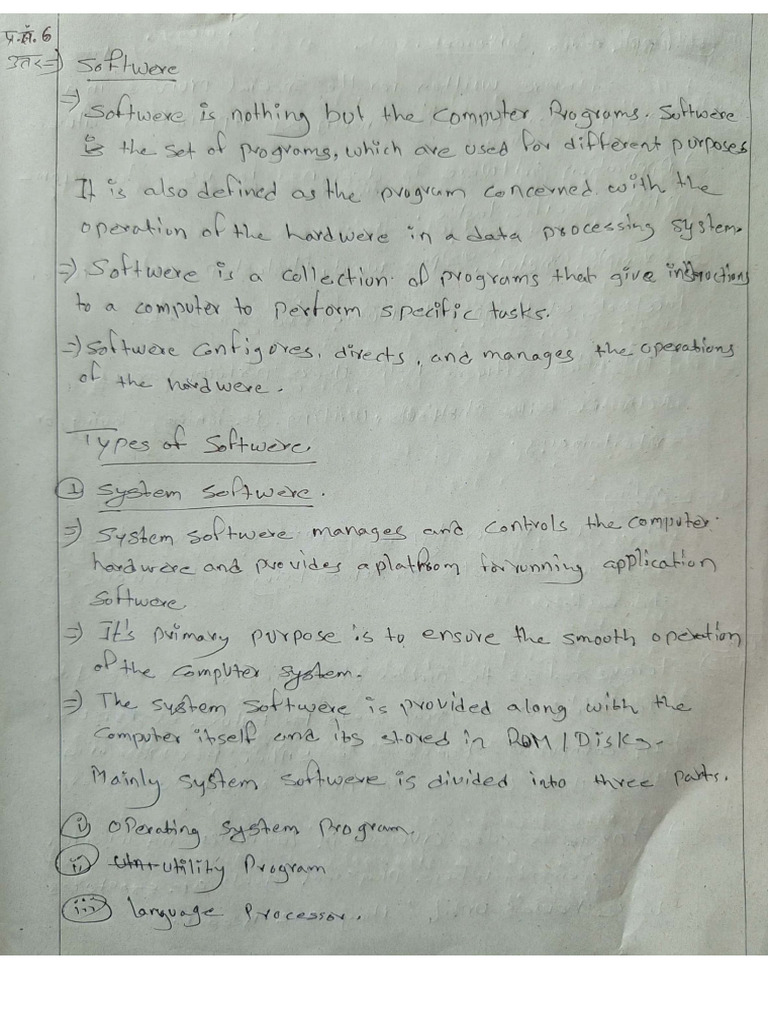 प्र.सं. 6
उतर⇒ Softwere
⇒ Softwere is nothing but the computer Programs. Softwere
is the set of programs, which are used for different purposes
It is also defined as the program concerned with the
operation of the hardwere in a data processing system.
⇒ Softwere is a collection of programs that give instructions
to a computer to perform specific tasks.
⇒ Softwere configores, directs, and manages the operations
of the hardwere.
Types of Softwere.
① System Softwere.
⇒ System softwere manages and controls the computer
hardwere and provides a platform for running application
softwere
⇒ It's primary purpose is to ensure the smooth operation
of the computer system.
⇒ The system softwere is provided along with the
computer itself and its stored in ROM/Disks.
Mainly system softwere is divided into three parts.
i) Operating System Program.
ii) utility Program
iii) language Processor.